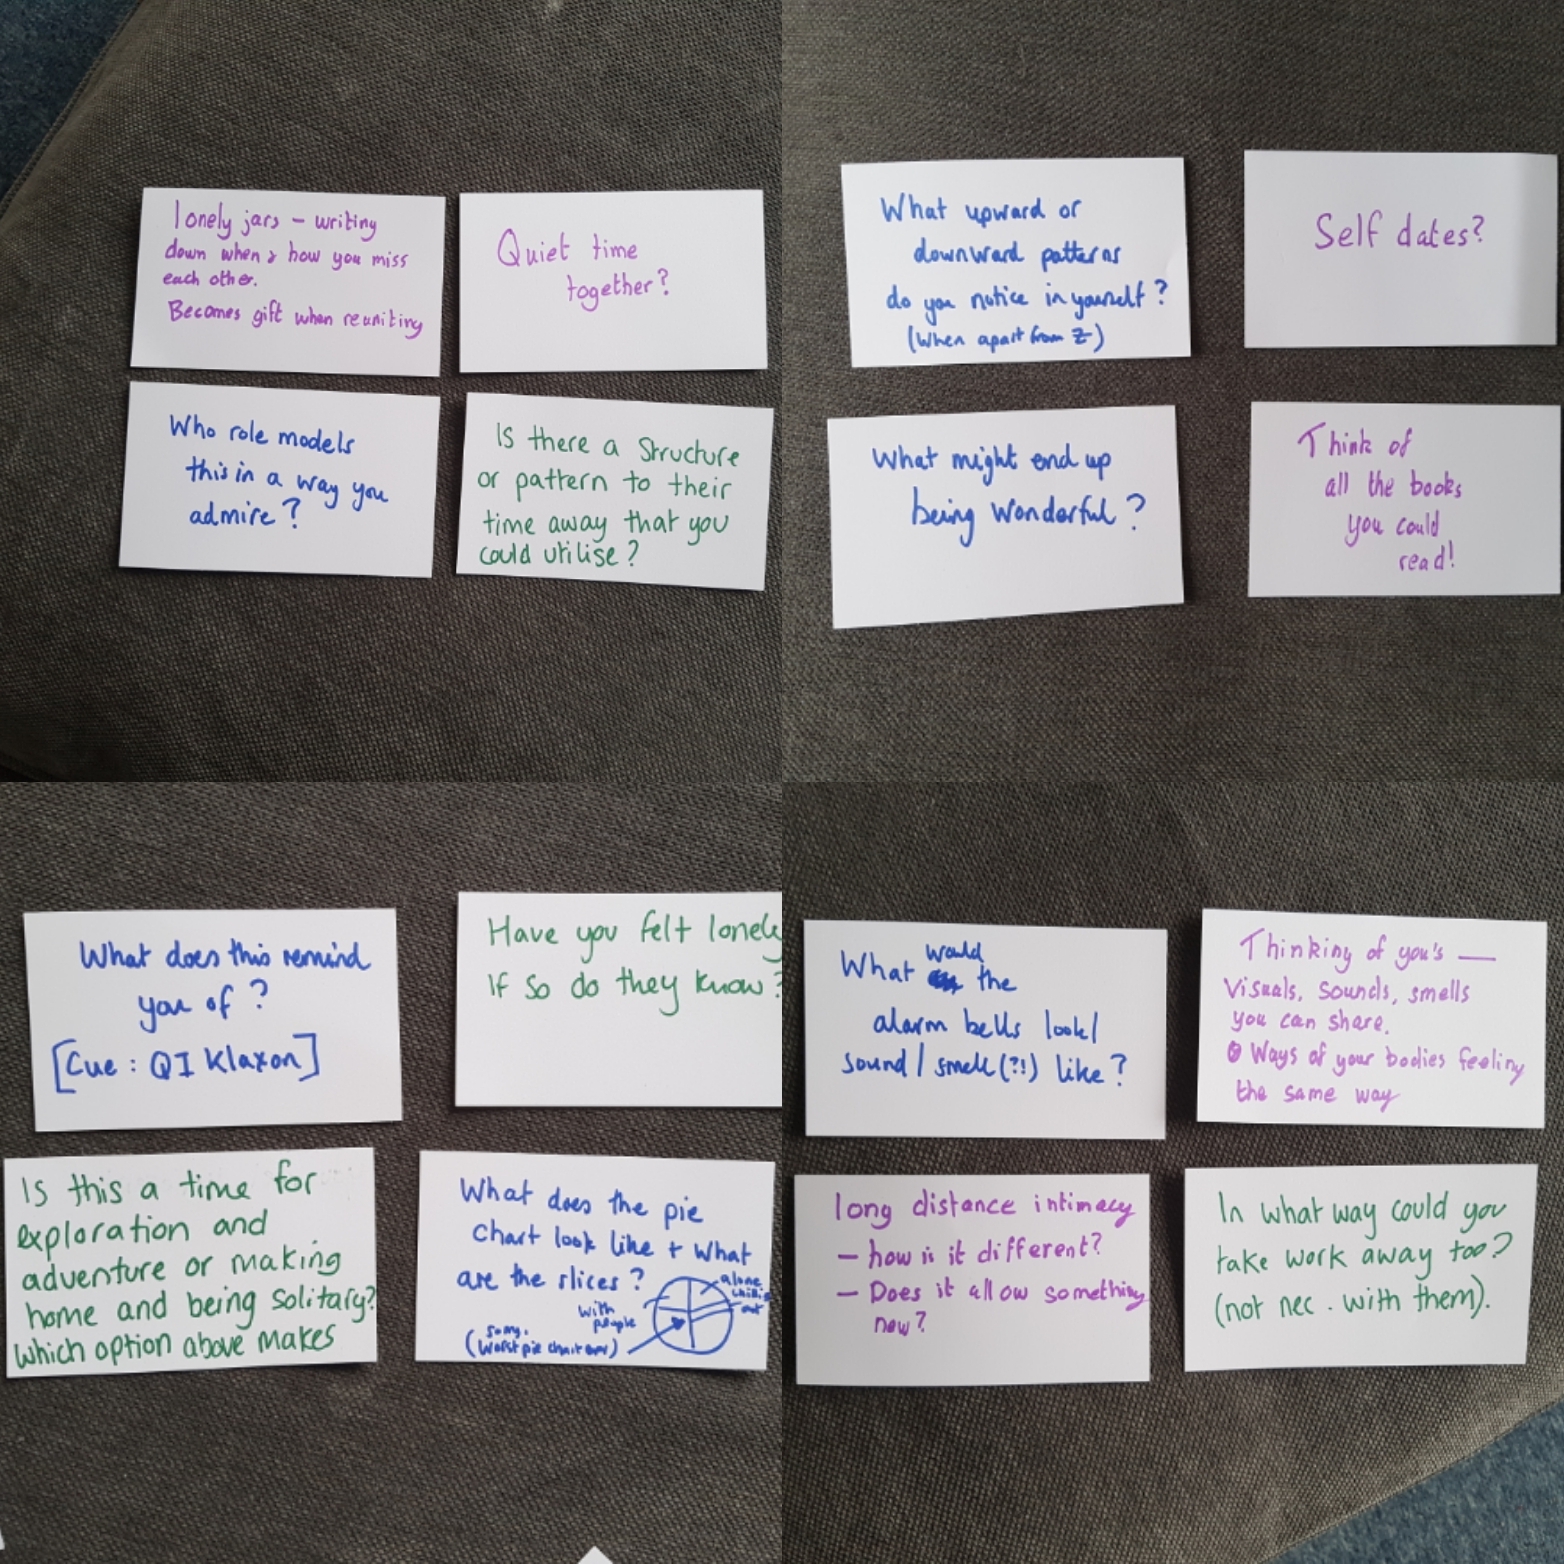 lonely jars – writing
down when & how you miss
each other.
Becomes gift when reuniting
Quiet time
together?
Who role models
this in a way you
admire?
Is there a Structure
or pattern to their
time away that you
could utilise?
What upward or
downward patterns
do you notice in yourself?
(when apart from Z)
Self dates?
What might end up
being wonderful?
Think of
all the books
you could
read!
What does this remind
you of?
[Cue: QI Klaxon]
Have you felt lonely
If so do they know?
Is this a time for
exploration and
adventure or making
home and being solitary?
which option above makes
What does the pie
chart look like + what
are the slices?
alone
chilling
out
with
people
sorry.
(Worst pie chart ever)
What would the
alarm bells look/
sound/smell(?!) like?
Thinking of you's —
Visuals, sounds, smells
you can share.
Ways of your bodies feeling
the same way
long distance intimacy
– how is it different?
– Does it allow something
new?
In what way could you
take work away too?
(not nec. with them).